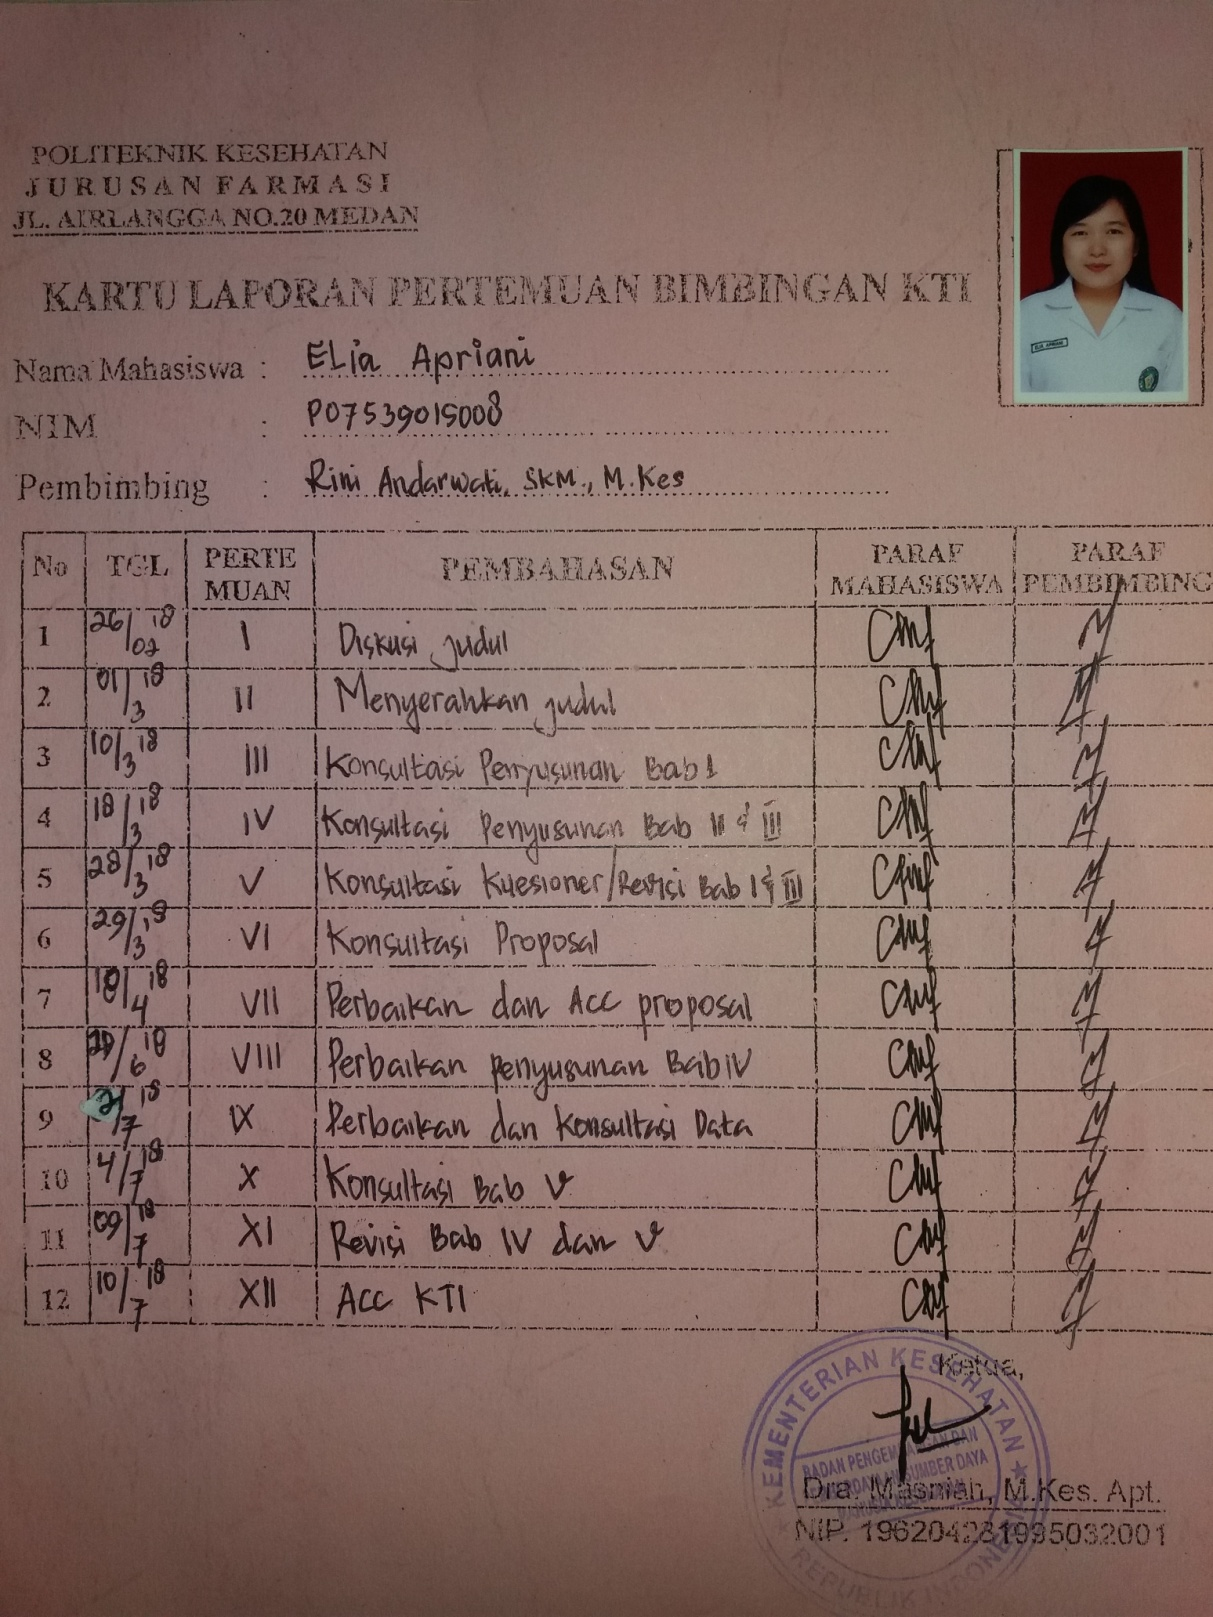 POLITEKNIK KESEHATAN
JURUSAN FARMASI
JL. AIRLANGGA NO.20 MEDAN
KARTU LAPORAN PERTEMUAN BIMBINGAN KTI
ELIA APRIANI
Nama Mahasiswa : ELia Apriani
NIM : P07539015008
Pembimbing : Rini Andarwati, SKM., M.Kes
No TGL PERTEMUAN PEMBAHASAN PARAF MAHASISWA PARAF PEMBIMBING
1 26/02 18 I Diskusi judul
2 01/3 18 II Menyerahkan judul
3 10/3 18 III Konsultasi Penyusunan Bab 1
4 18/3 18 IV Konsultasi Penyusunan Bab II & III
5 28/3 18 V Konsultasi Kuesioner/Revisi Bab I & III
6 29/3 18 VI Konsultasi Proposal
7 18/4 18 VII Perbaikan dan Acc proposal
8 /6 18 VIII Perbaikan penyusunan Bab IV
9 2/7 18 IX Perbaikan dan Konsultasi Data
10 4/7 18 X Konsultasi Bab V
11 09/7 18 XI Revisi Bab IV dan V
12 10/7 18 XII Acc KTI
Ketua,
KEMENTERIAN KESEHATAN
BADAN PENGEMBANGAN DAN
PEMBERDAYAAN SUMBER DAYA
MANUSIA KESEHATAN
REPUBLIK INDONESIA
Dra. Masniah, M.Kes. Apt.
NIP. 196204281995032001